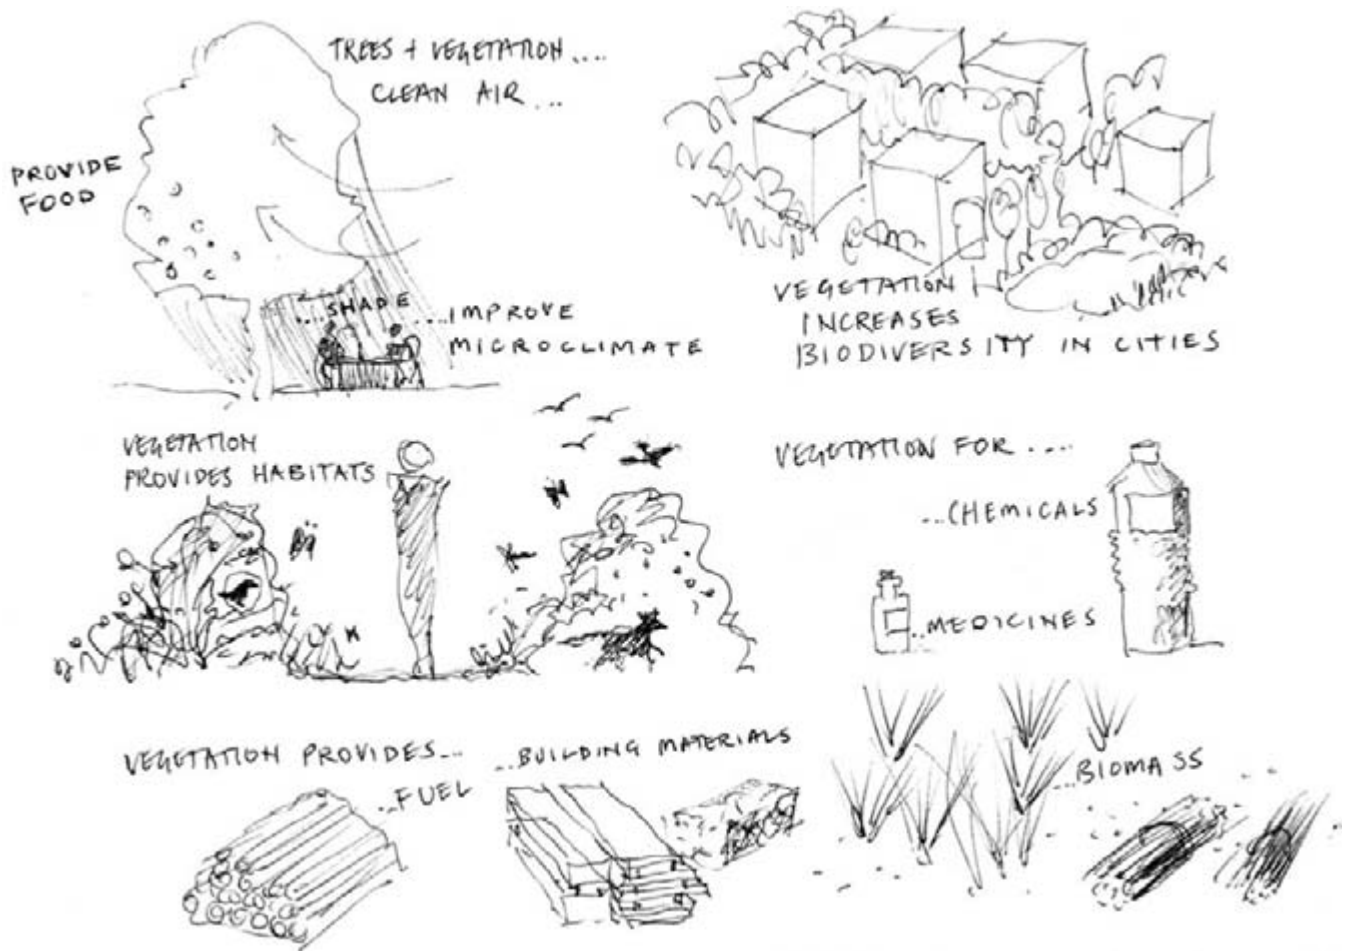 TREES + VEGETATION ....
CLEAN AIR ...
PROVIDE
FOOD
....SHADE
....IMPROVE
MICROCLIMATE
VEGETATION
INCREASES
BIODIVERSITY IN CITIES
VEGETATION
PROVIDES HABITATS
VEGETATION FOR ....
...CHEMICALS
...MEDICINES
VEGETATION PROVIDES...
...FUEL
...BUILDING MATERIALS
...BIOMASS